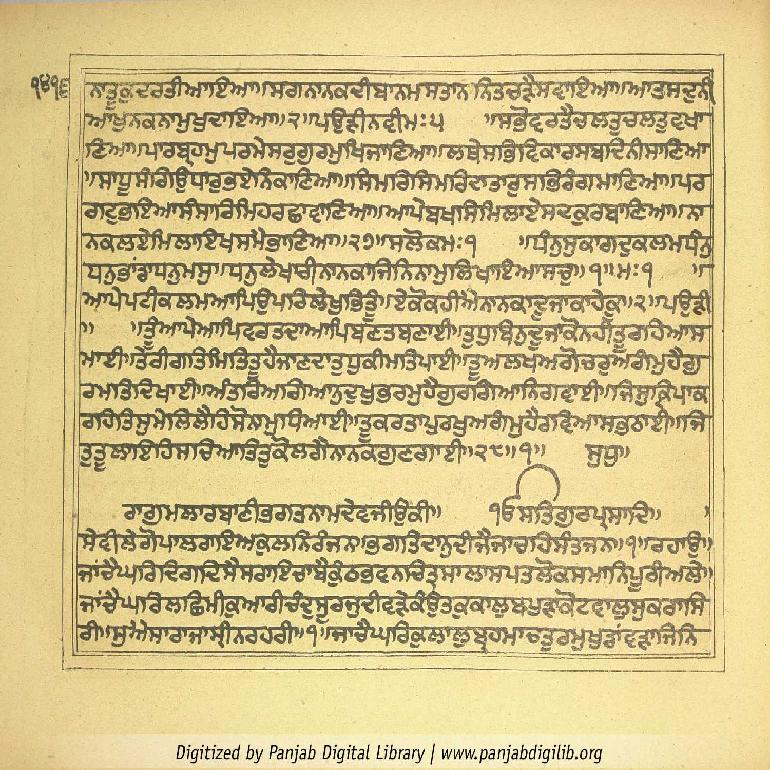 ੧੪੧੬
ਨਾਤੂਕੁਦਰਤੀਆਇਆ॥ਸਗਨਾਨਕਦੀਬਾਨਮਸਤਾਨਨਿਤਚੜੈਸਵਾਇਆ॥ਆਤਸਦੁਨੀ
ਆਖੁਨਕਨਾਮੁਖੁਦਾਇਆ॥੨॥ਪਉੜੀਨਵੀਮਃ੫ ॥ਸਭੋਵਰਤੈਚਲਤੁਚਲਤੁਵਖਾ
ਣਿਆ॥ਪਾਰਬ੍ਰਹਮੁਪਰਮੇਸਰੁਗੁਰਮੁਖਿਜਾਣਿਆ॥ਲਥੇਸਭਿਵਿਕਾਰਸਬਦਿਨੀਸਾਣਿਆ
॥ਸਾਧੂਸੰਗਿਉਧਾਰੁਭਏਨਿਕਾਣਿਆ॥ਸਿਮਰਿਸਿਮਰਿਦਾਤਾਰੁਸਭਿਰੰਗਮਾਣਿਆ॥ਪਰ
ਗਟੁਭਇਆਸੰਸਾਰਿਮਿਹਰਛਾਵਾਣਿਆ॥ਆਪੇਬਖਸਿਮਿਲਾਏਸਦਕੁਰਬਾਣਿਆ॥ਨਾ
ਨਕਲਏਮਿਲਾਇਖਸਮੈਭਾਣਿਆ॥੨੭॥ਸਲੋਕਮਃ੧ ॥ਧੰਨੁਸੁਕਾਗਦੁਕਲਮਧੰਨੁ
ਧਨੁਭਾਂਡਾਧਨੁਮਸੁ॥ਧਨੁਲੇਖਾਰੀਨਾਨਕਾਜਿਨਿਨਾਮੁਲਿਖਾਇਆਸਚੁ॥੧॥ਮਃ੧ ॥
ਆਪੇਪਟੀਕਲਮਆਪਿਉਪਰਿਲੇਖੁਭਿਤੂੰ॥ਏਕੋਕਹੀਐਨਾਨਕਾਦੂਜਾਕਾਹੇਕੂ॥੨॥ਪਉੜੀ
॥ ॥ਤੂੰਆਪੇਆਪਿਵਰਤਦਾਆਪਿਬਣਤਬਣਾਈ॥ਤੁਧੁਬਿਨੁਦੂਜਾਕੋਨਹੀਤੂਰਹਿਆਸ
ਮਾਈ॥ਤੇਰੀਗਤਿਮਿਤਿਤੂਹੈਜਾਣਦਾਤੁਧੁਕੀਮਤਿਪਾਈ॥ਤੂਅਲਖਅਗੋਚਰੁਅਗੰਮੁਹੈਗੁ
ਰਮਤਿਦਿਖਾਈ॥ਅੰਤਰਿਅਗਿਆਨੁਦੁਖੁਭਰਮੁਹੈਗੁਰਗਿਆਨਿਗਵਾਈ॥ਜਿਸੁਕ੍ਰਿਪਾਕ
ਰਹਿਤਿਸੁਮੇਲਿਲੈਹਿਸੋਨਾਮੁਧਿਆਈ॥ਤੂਕਰਤਾਪੁਰਖੁਅਗੰਮੁਹੈਰਵਿਆਸਭਠਾਈ॥ਜਿ
ਤੁਤੂਲਾਇਹਿਸਚਿਆਤਿਤੁਕੋਲਗੈਨਾਨਕਗੁਣਗਾਈ॥੨੮॥੧॥ ਸੁਧੁ॥
ਰਾਗੁਮਲਾਰਬਾਣੀਭਗਤਨਾਮਦੇਵਜੀਉਕੀ॥ ੴਸਤਿਗੁਰਪ੍ਰਸਾਦਿ॥ ॥
ਸੇਵੀਲੇਗੋਪਾਲਰਾਇਅਕੁਲਨਿਰੰਜਨ॥ਭਗਤਿਦਾਨੁਦੀਜੈਜਾਚਹਿਸੰਤਜਨ॥੧॥ਰਹਾਉ॥
ਜਾਂਚੈਘਰਿਦਿਗਦਿਸੈਸਰਾਇਚਾਬੈਕੁੰਠਭਵਨਚਿਤ੍ਰਸਾਲਾਸਪਤਲੋਕਸਮਾਨਿਪੂਰੀਅਲੇ॥
ਜਾਂਚੈਘਰਿਲਛਿਮੀਕੁਆਰੀਚੰਦੁਸੂਰਜੁਦੀਵੜੇਕਉਤਕੁਕਾਲੁਬਪੁੜਾਕੋਟਵਾਲੁਸੁਕਰਾਸਿ
ਰੀ॥ਸੁਐਸਾਰਾਜਾਸ੍ਰੀਨਰਹਰੀ॥੧॥ਜਾਚੈਘਰਿਕੁਲਾਲੁਬ੍ਰਹਮਾਚਤੁਰਮੁਖੁਡਾਂਵੜਾਜਿਨਿ
Digitized by Panjab Digital Library | www.panjabdigilib.org